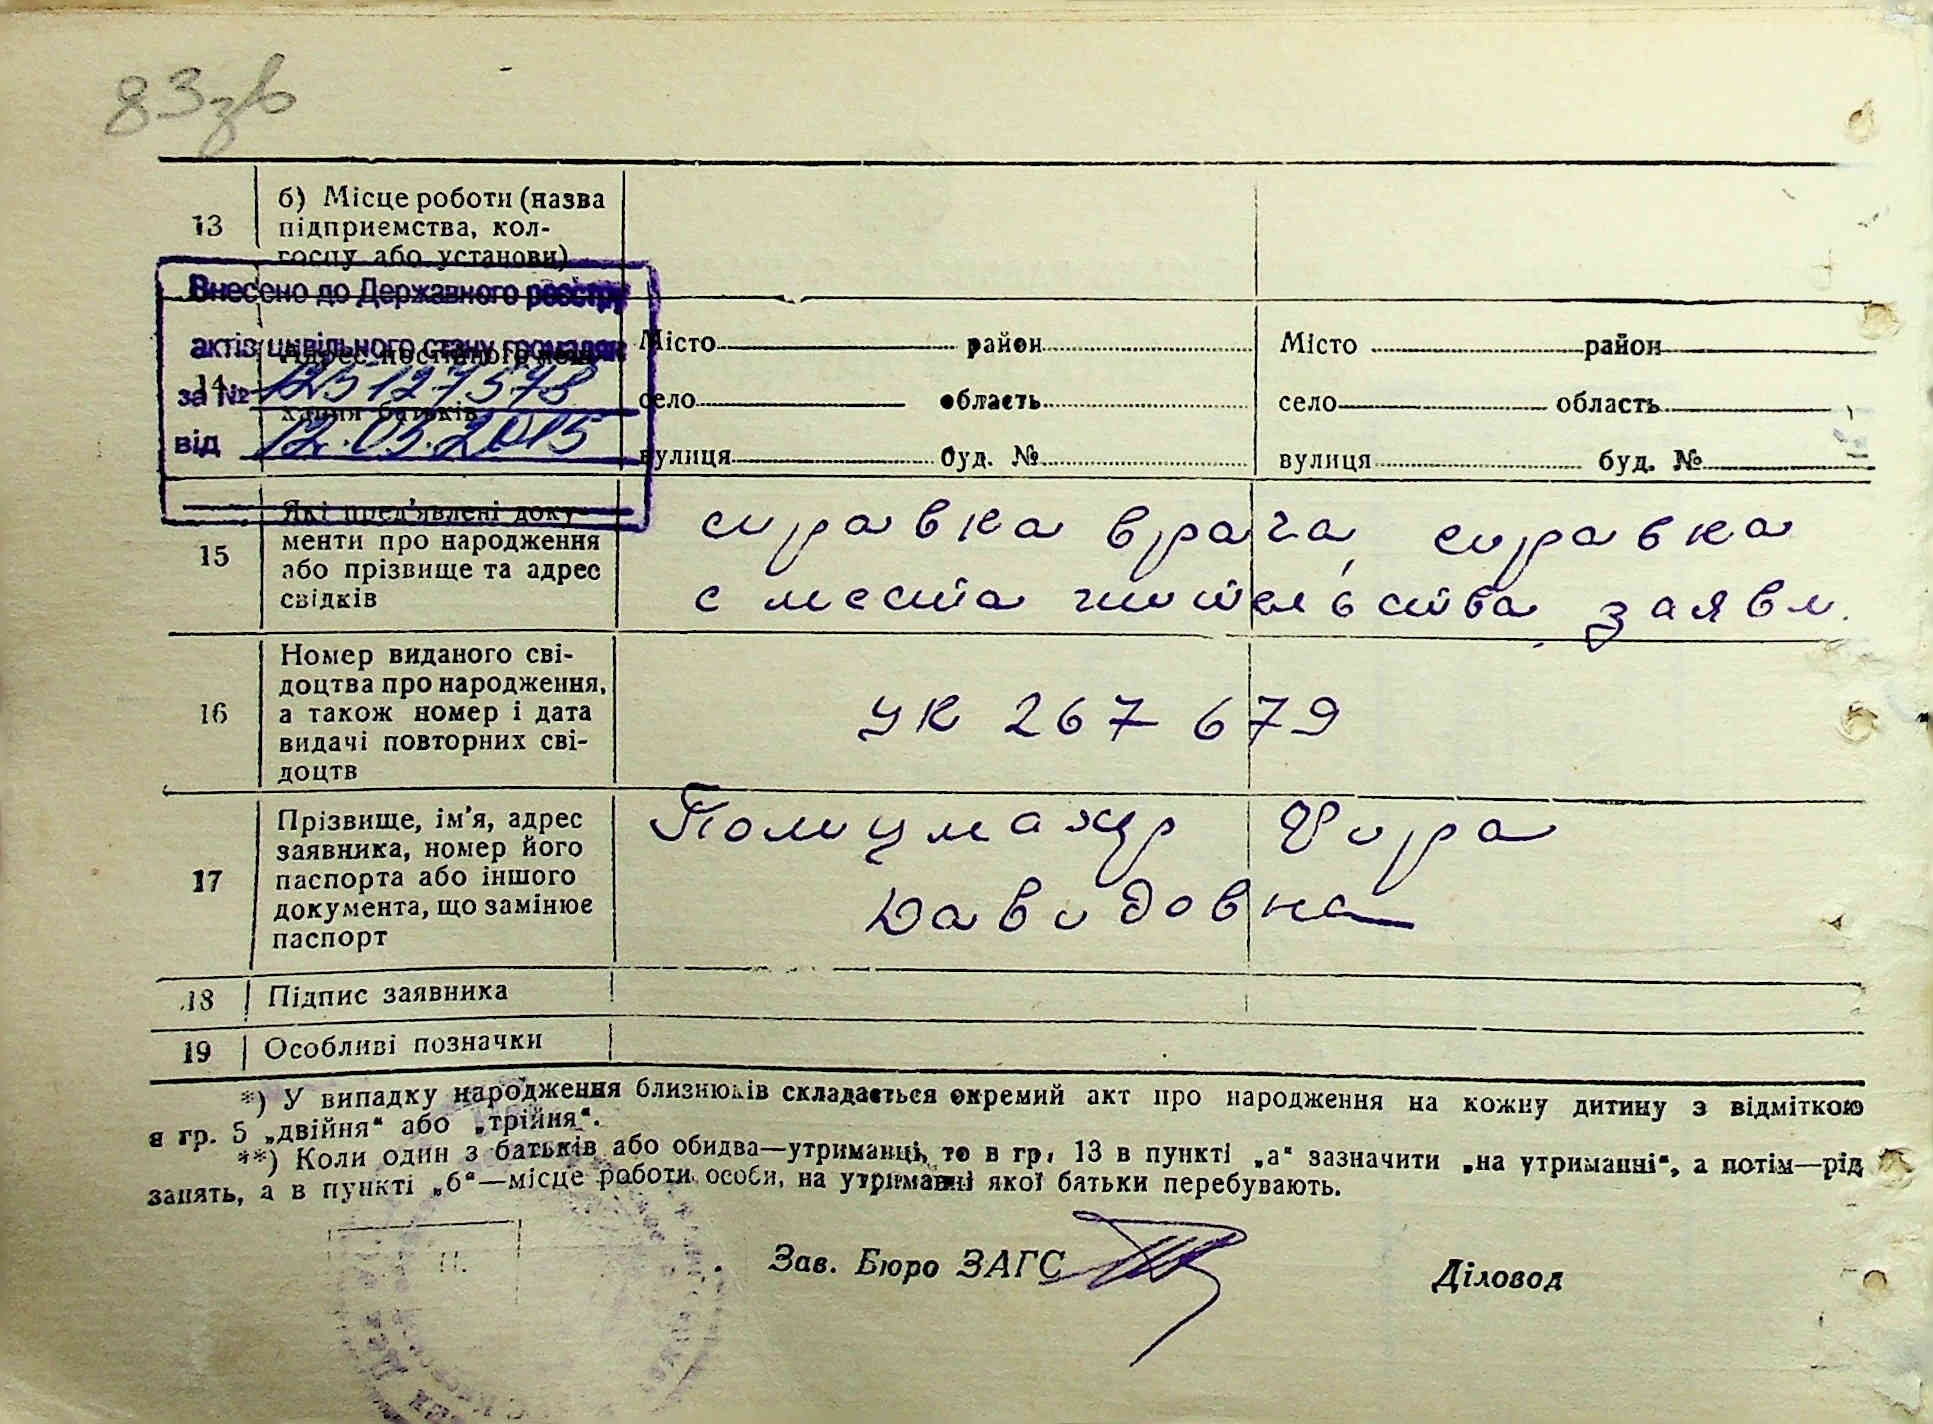 83зв
13
б) Місце роботи (назва
підприємства, кол-
госпу або установи)
Внесено до Державного реєстру
актів цивільного стану громадян
за № 125127578
від 12.03.2015
14
Адрес постійного
хання батьків
Місто район
село область
вулиця буд. №
Місто район
село область
вулиця буд. №
15
Які пред'явлені доку-
менти про народження
або прізвище та адрес
свідків
справка врача, справка
с места жительства, заявл.
16
Номер виданого сві-
доцтва про народження,
а також номер і дата
видачі повторних сві-
доцтв
УК 267679
17
Прізвище, ім'я, адрес
заявника, номер його
паспорта або іншого
документа, що замінює
паспорт
Полицмахер Фира
Давидовна
18 Підпис заявника
19 Особливі позначки
*) У випадку народження близнюків складається окремий акт про народження на кожну дитину з відміткою
в гр. 5 „двійня“ або „трійня“.
**) Коли один з батьків або обидва—утриманці, то в гр. 13 в пункті „а“ зазначити „на утриманні“, а потім—рід
занять, а в пункті „б“—місце роботи особи, на утриманні якої батьки перебувають.
Зав. Бюро ЗАГС
Діловод